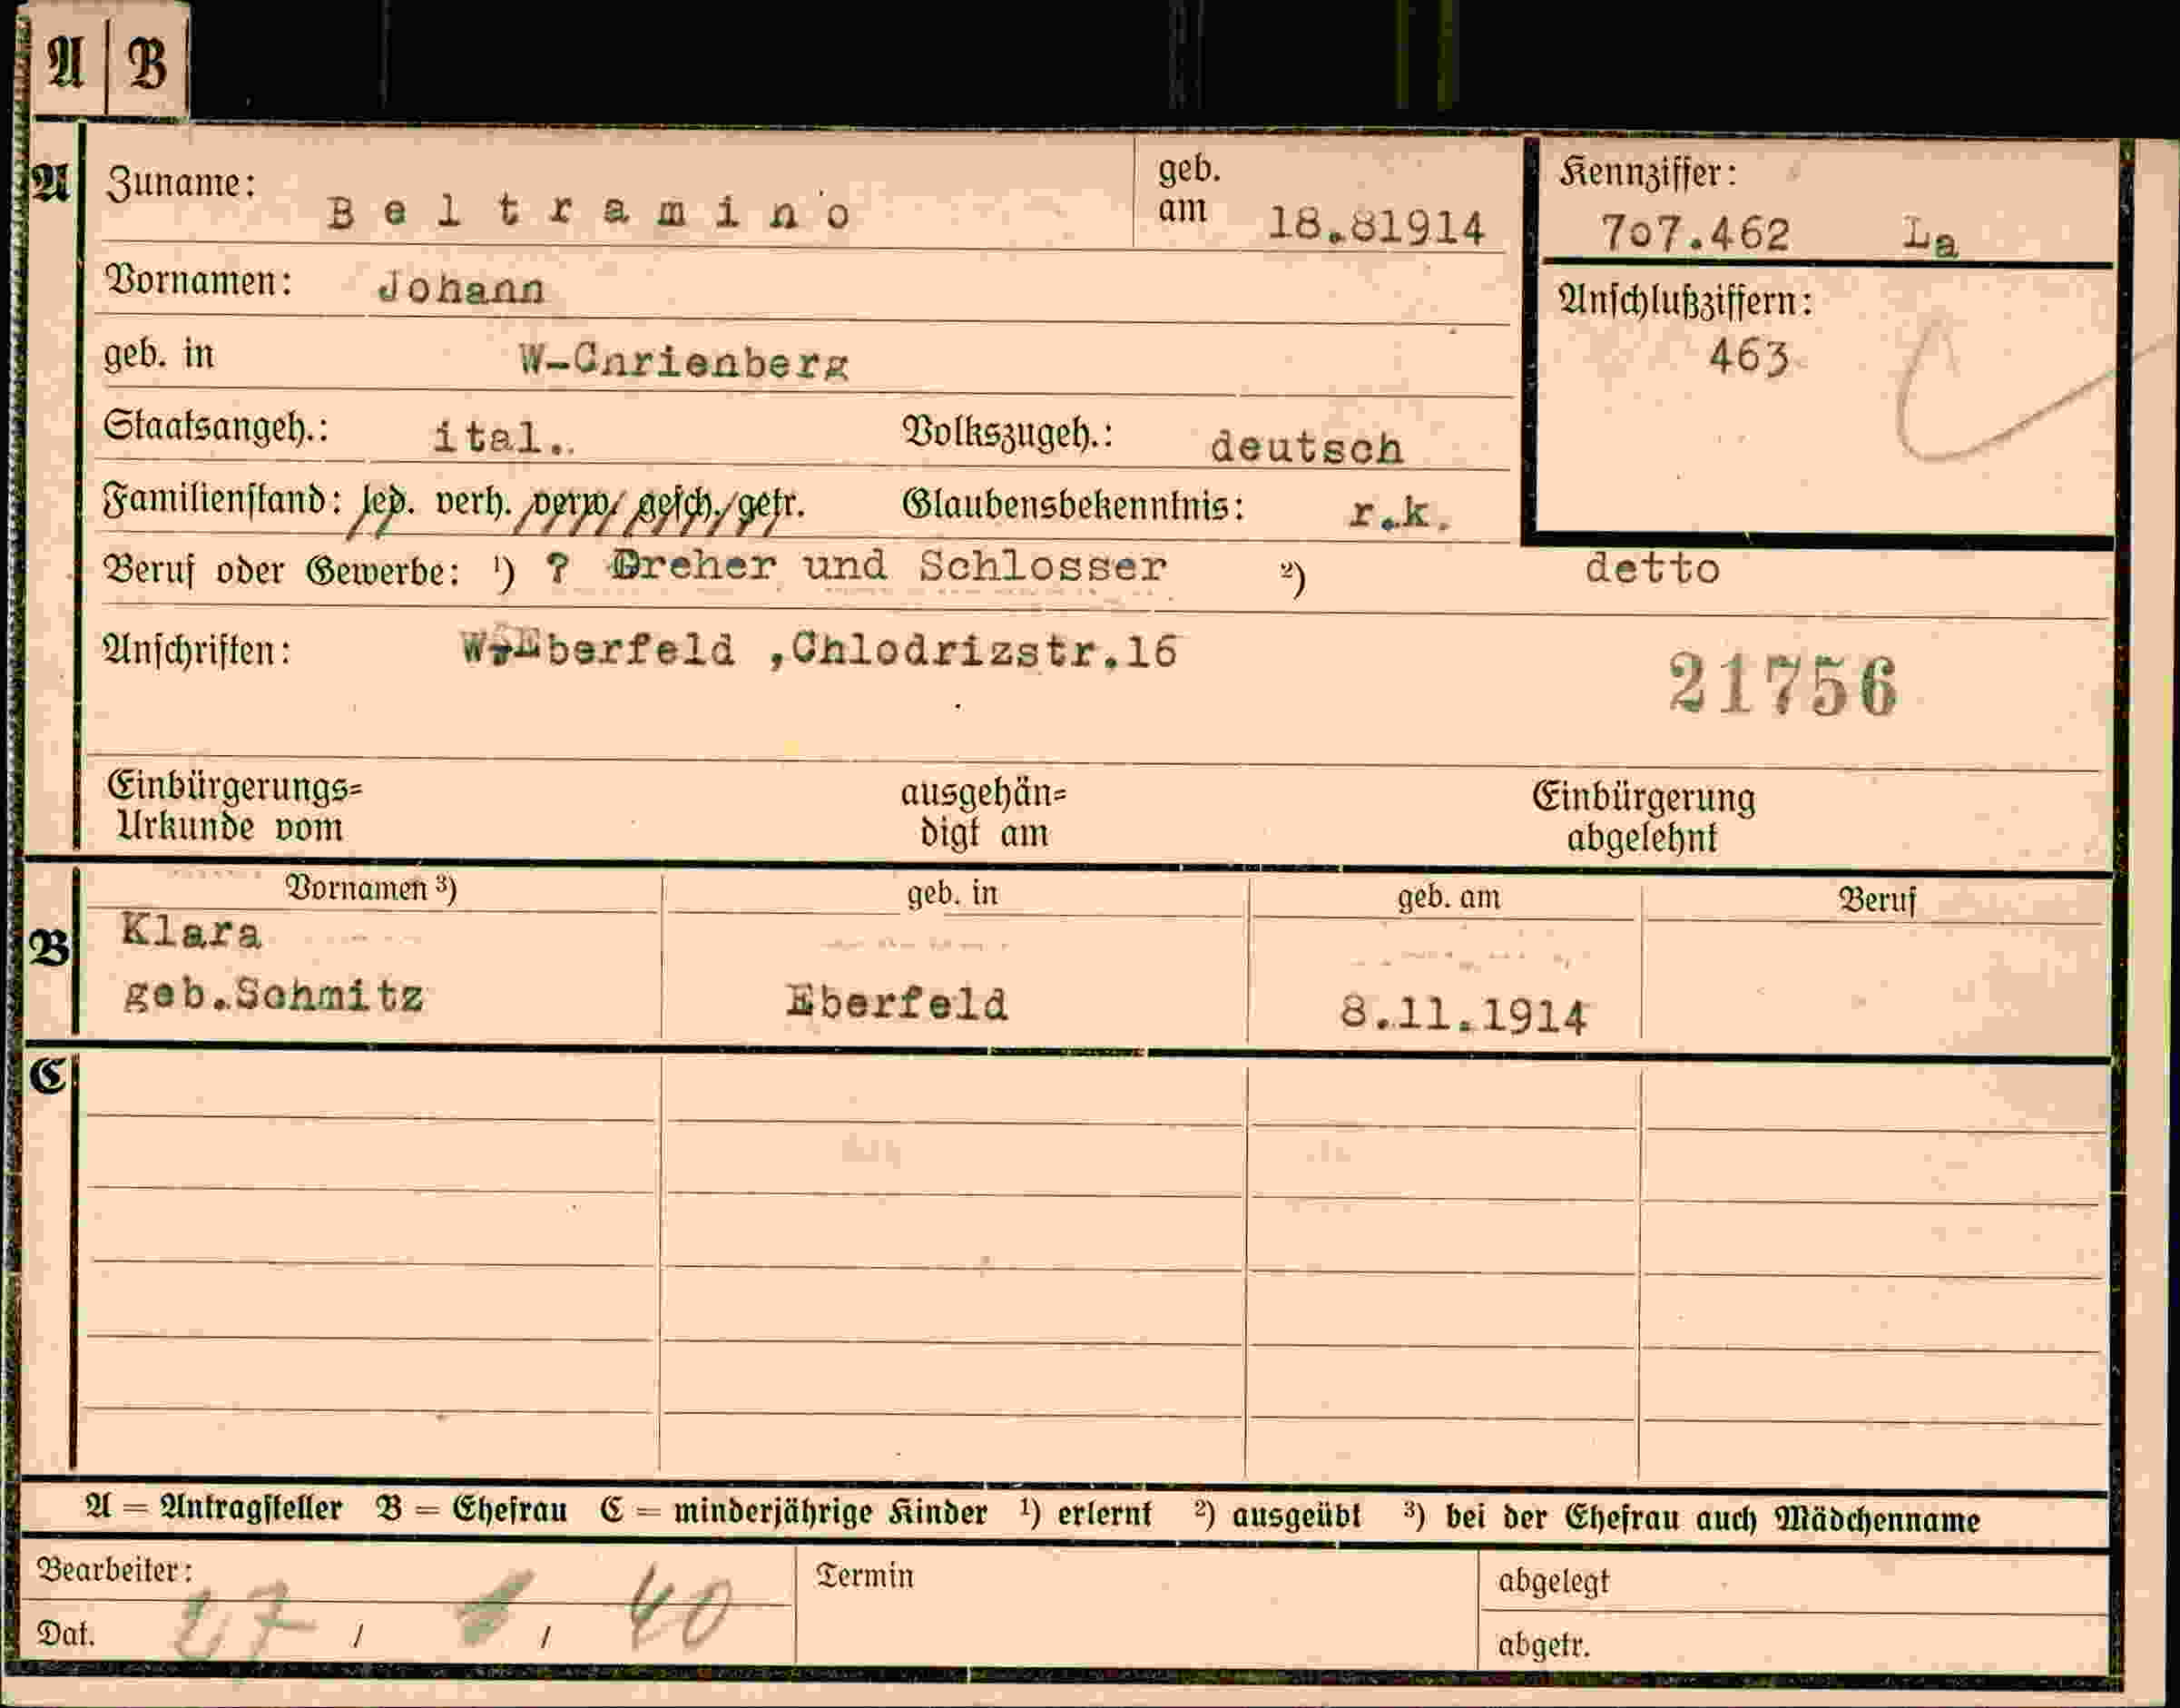 A B
A Zuname: Beltramino geb. am 18.81914 Kennziffer: 707.462 La
Vornamen: Johann Anschlußziffern: 463
geb. in W-Cnrienberg
Staatsangeh.: ital. Volkszugeh.: deutsch
Familienstand: led. verh. verw. gesch. getr. Glaubensbekenntnis: r.k.
Beruf oder Gewerbe: ¹) ? Dreher und Schlosser ²) detto
Anschriften: W-Eberfeld ,Chlodrizstr.16
21756
Einbürgerungs= ausgehän= Einbürgerung
Urkunde vom digt am abgelehnt
Vornamen ³) geb. in geb. am Beruf
B Klara
geb.Schmitz Eberfeld 8.11.1914
C
A = Antragsteller B = Ehefrau C = minderjährige Kinder ¹) erlernt ²) ausgeübt ³) bei der Ehefrau auch Mädchenname
Bearbeiter: Termin abgelegt
Dat. 27 / / 40 abgetr.